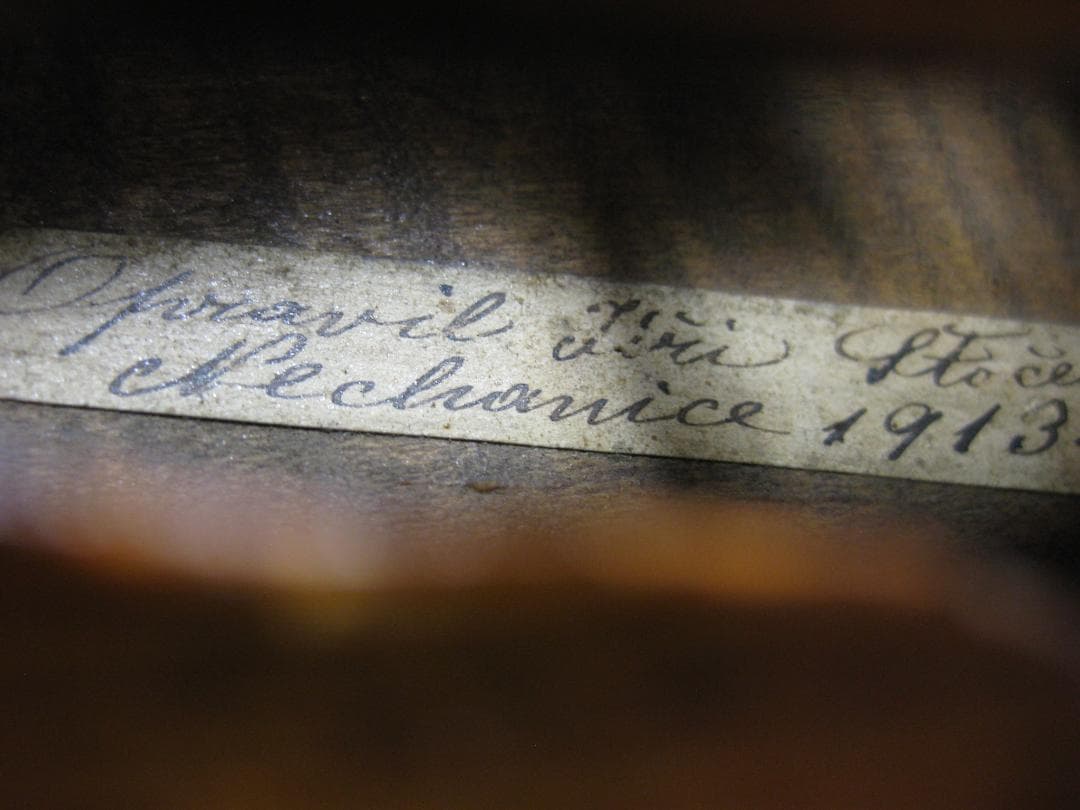 Opravil Jiří Štoče
Nechanice 1913.